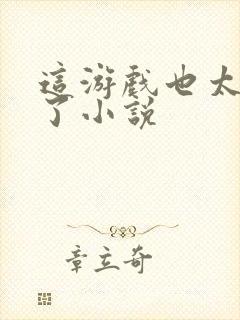 這游戲也太
了小說
章立奇